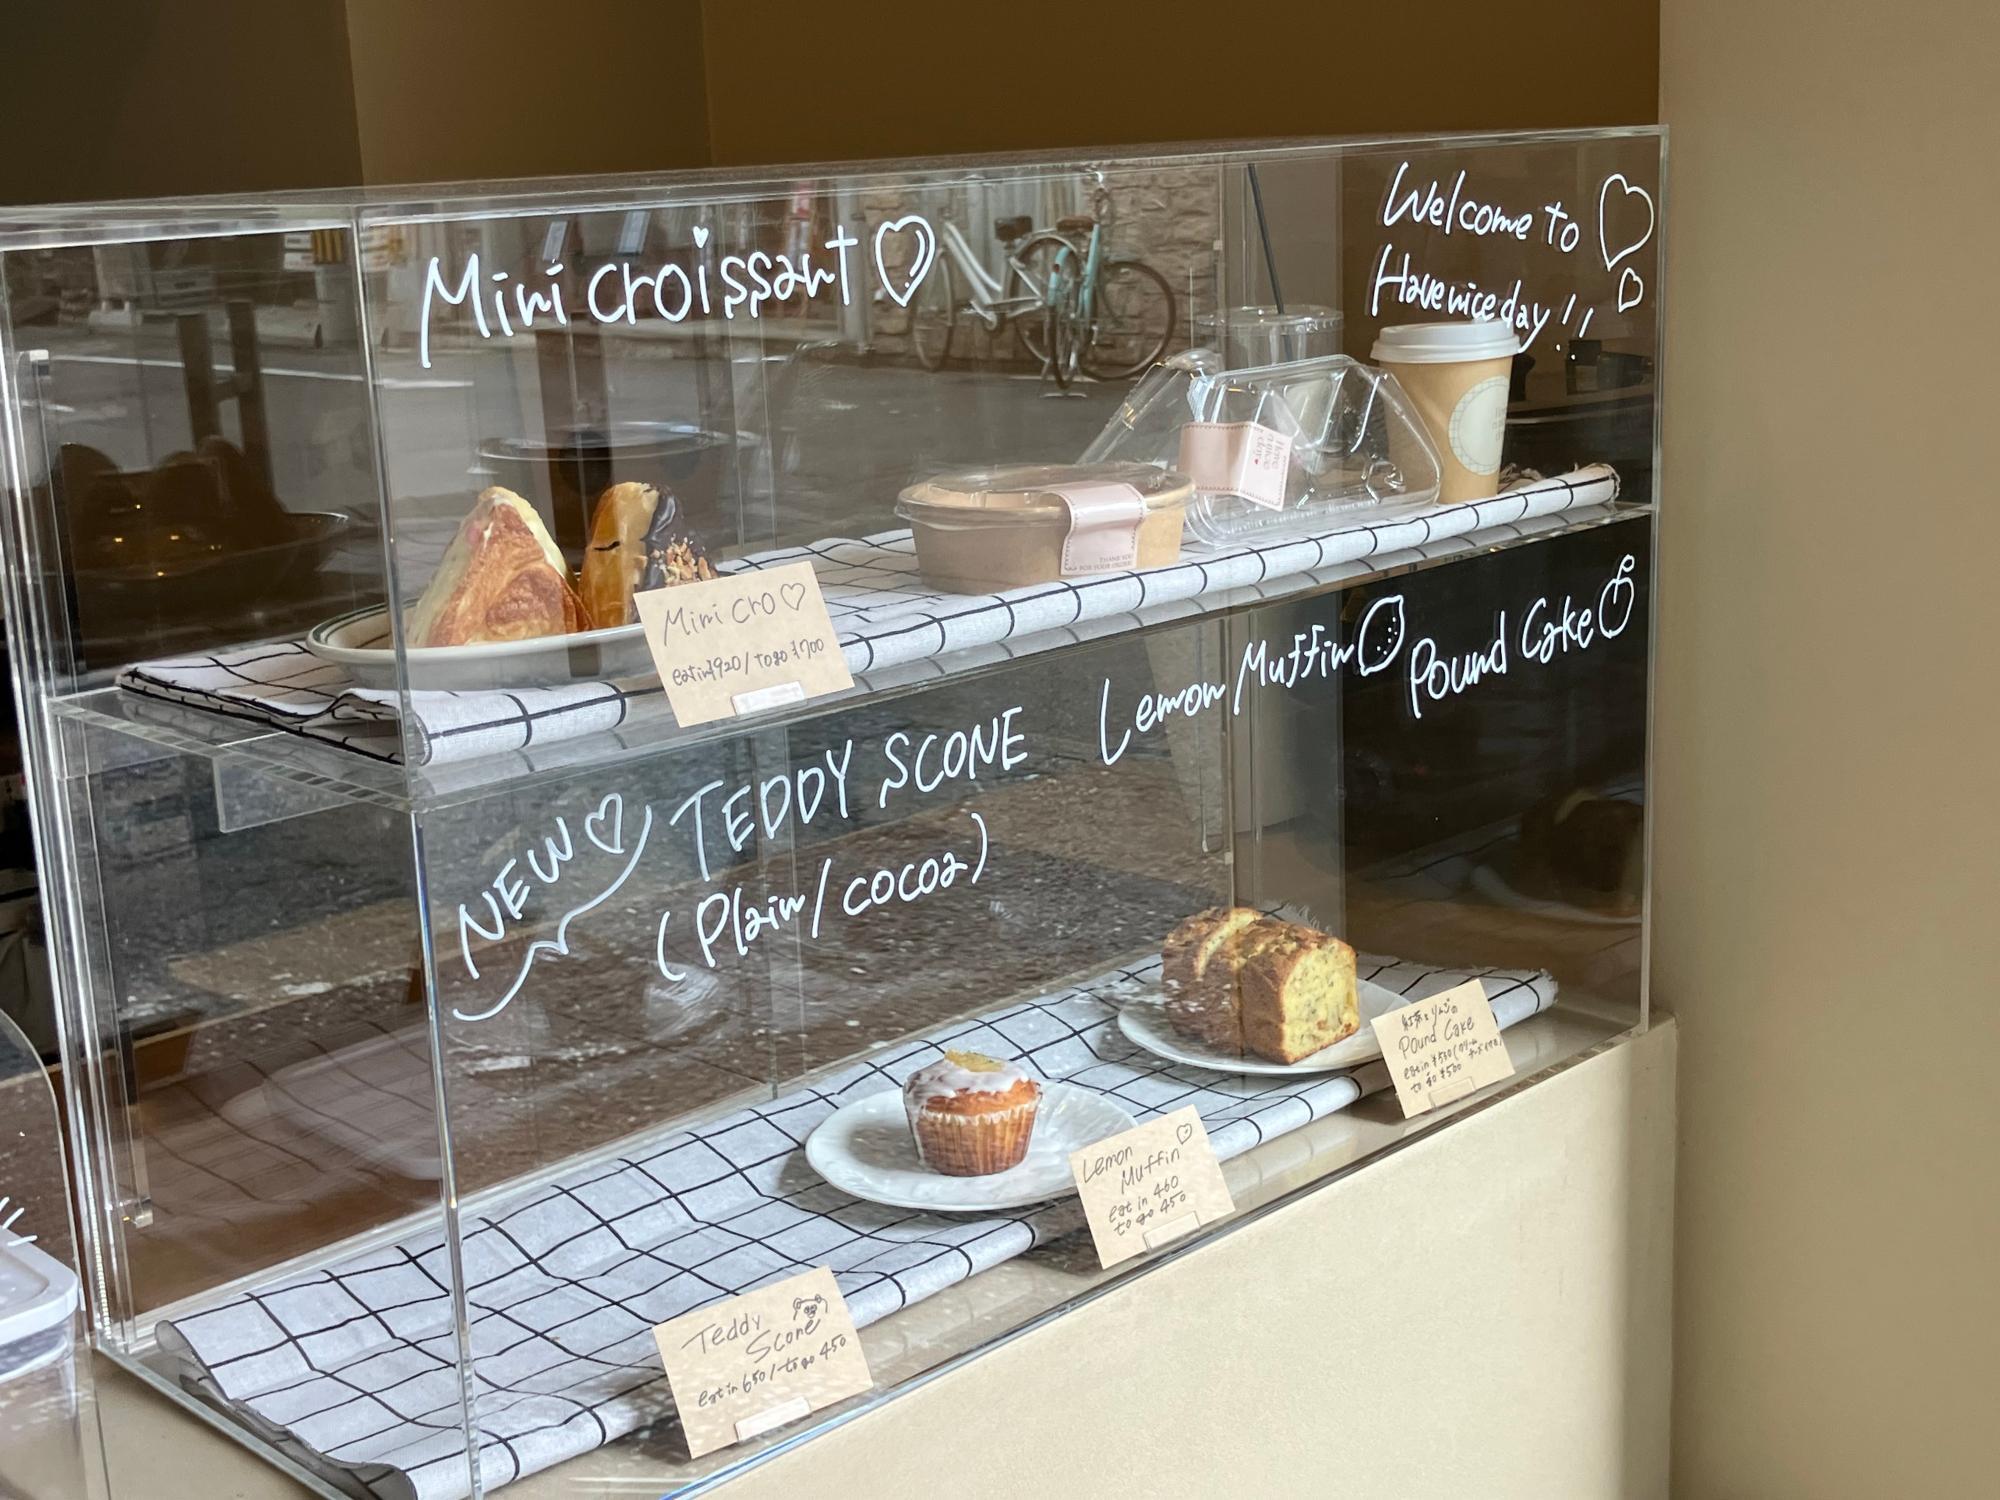 Mini croissant
Welcome to
Have nice day!!
Have
a nice
day
THANK YOU
FOR YOUR ORDER!
Mini cro
eat in ¥920 / to go ¥700
Lemon Muffin
Pound Cake
NEW
TEDDY SCONE
(Plain/cocoa)
紅茶とりんごの
Pound Cake
eat in ¥530(クリーム
to go ¥500
Lemon
Muffin
eat in 460
to go 450
Teddy
Scone
eat in 650 / to go 450